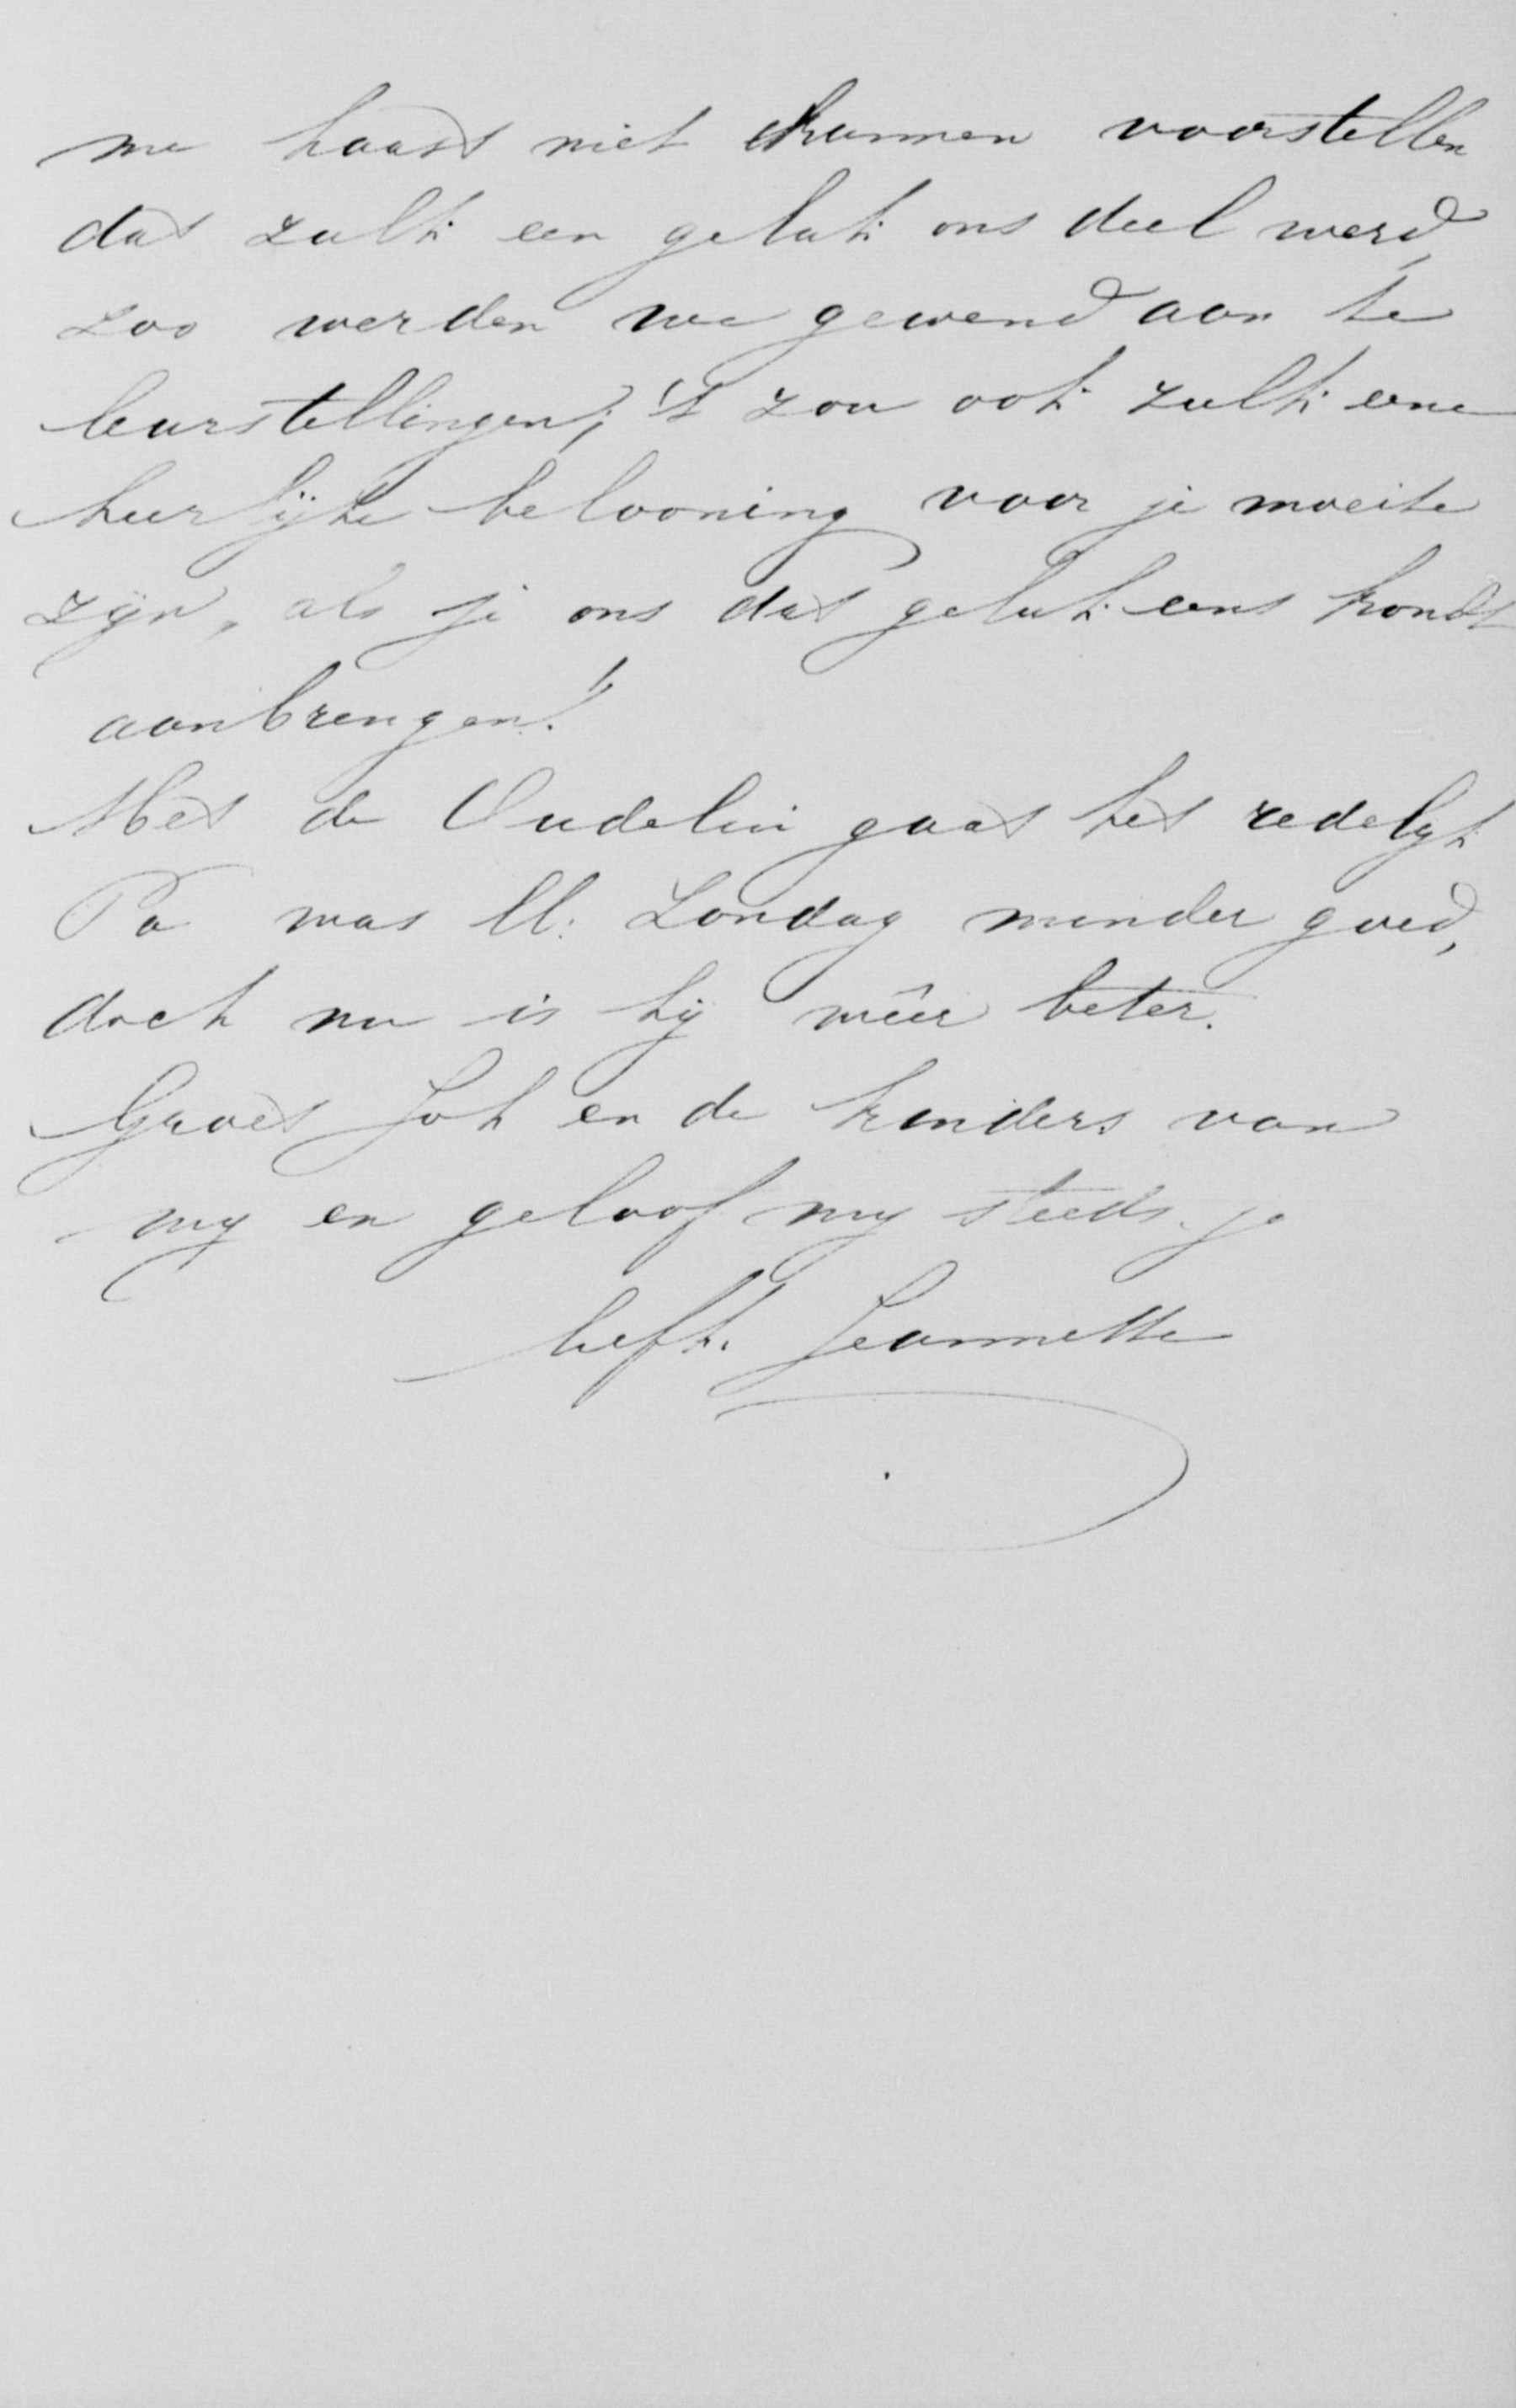 me haast niet kunnen voorstellen
dat zulk een geluk ons deel werd,
zoo werden we gewend aan te
leurstellingen; 't zou ook zulk eene
heerlijke belooning voor je moeite
zijn, als je ons dat geluk eens kondt
aanbrengen!
Met de Oudelui gaat het redelyk
Pa was ll: Zondag minder goed,
doch nu is hij wêer beter.
Groet Joh en de kinders van
my en geloof my steeds je
liefh. Jeannette